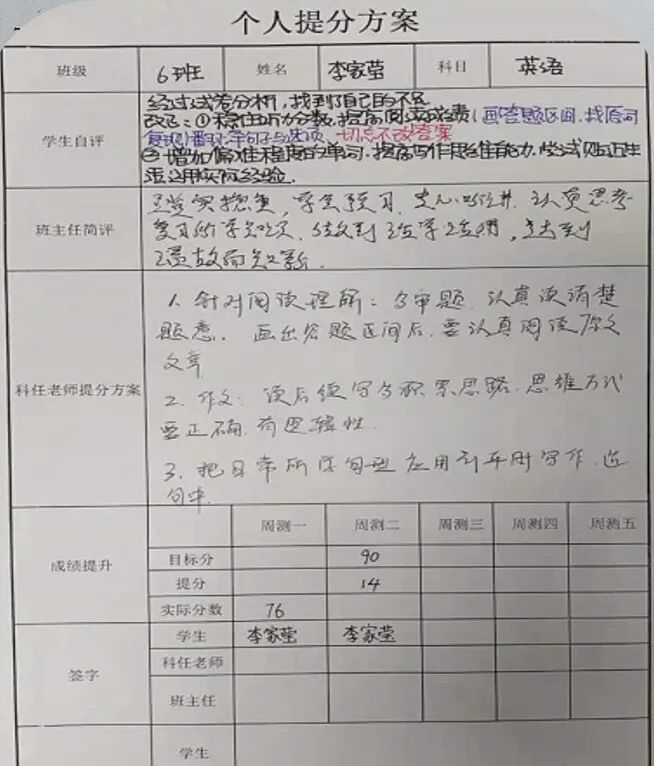 个人提分方案
班级 6班 姓名 李家莹 科目 英语
学生自评
经过试卷分析,找到了自己的不足
改正:①稳住听力分数,提高阅读 画答题区间,找原词
切忌不改答案
②增加偏难程度的单词,提高写作思维能力,尝试贴近生
活运用实际经验.
班主任简评
认真思考
达到
温故而知新.
科任老师提分方案
1. 针对阅读理解: 多审题. 认真读清楚
题意. 画出答题区间后. 要认真阅读原文
文章
2. 作文: 读后续写多积累思路. 思维方式
要正确. 有逻辑性.
3. 把日常所学句型应用到平时写作. 造
句中.
成绩提升
周测一 周测二 周测三 周测四 周测五
目标分 90
提分 14
实际分数 76
签字
学生 李家莹 李家莹
科任老师
班主任
学生